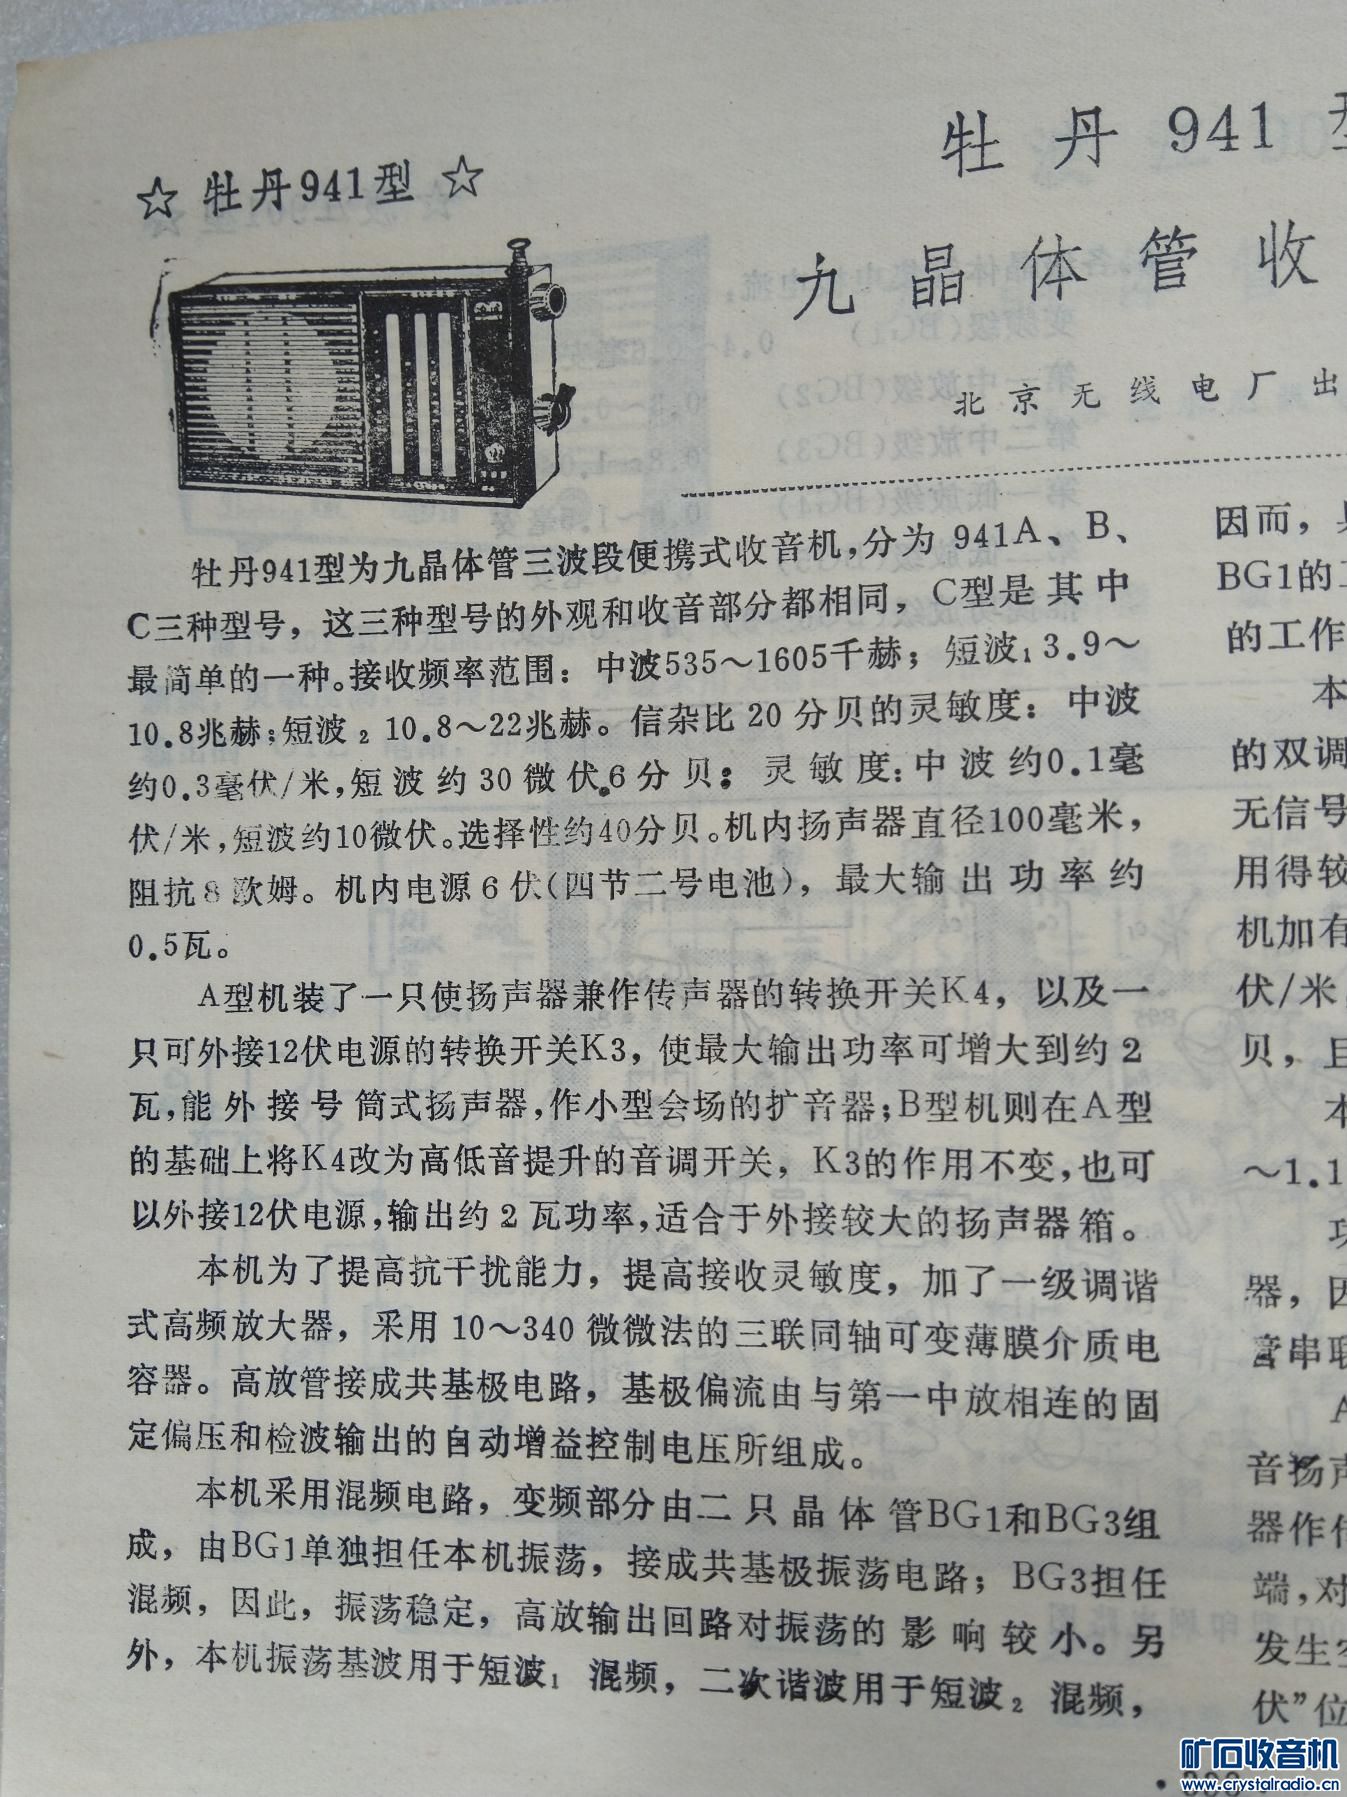 ☆ 牡丹941型 ☆
牡丹 941
九晶体管收
北京无线电厂出
牡丹941型为九晶体管三波段便携式收音机,分为 941A、B、
C三种型号，这三种型号的外观和收音部分都相同，C型是其中
最简单的一种。接收频率范围：中波535～1605千赫；短波₁ 3.9～
10.8兆赫；短波₂ 10.8～22兆赫。信杂比 20 分贝的灵敏度：中波
约0.3毫伏/米,短波约 30 微伏.6分贝：灵敏度:中波约0.1毫
伏/米,短波约10微伏。选择性约40分贝。机内扬声器直径100毫米，
阻抗8欧姆。机内电源 6 伏(四节二号电池)，最大输出功率约
0.5瓦。
A型机装了一只使扬声器兼作传声器的转换开关K4，以及一
只可外接12伏电源的转换开关K3，使最大输出功率可增大到约 2
瓦,能外接号筒式扬声器,作小型会场的扩音器;B型机则在A型
的基础上将K4改为高低音提升的音调开关，K3的作用不变,也可
以外接12伏电源,输出约 2 瓦功率,适合于外接较大的扬声器箱。
本机为了提高抗干扰能力，提高接收灵敏度，加了一级调谐
式高频放大器，采用 10～340 微微法的三联同轴可变薄膜介质电
容器。高放管接成共基极电路，基极偏流由与第一中放相连的固
定偏压和检波输出的自动增益控制电压所组成。
本机采用混频电路，变频部分由二只晶体管BG1和BG3组
成，由BG1单独担任本机振荡，接成共基极振荡电路；BG3担任
混频，因此，振荡稳定，高放输出回路对振荡的影响较小。另
外，本机振荡基波用于短波₁ 混频，二次谐波用于短波₂ 混频，
因而，
BG1的
的工作
本
的双调
无信号
用得较
机加有
伏/米
贝，且
本
～1.1
器，因
音串联
A
音扬声
器作传
端,对
发生
伏”位
矿石收音机
www.crystalradio.cn